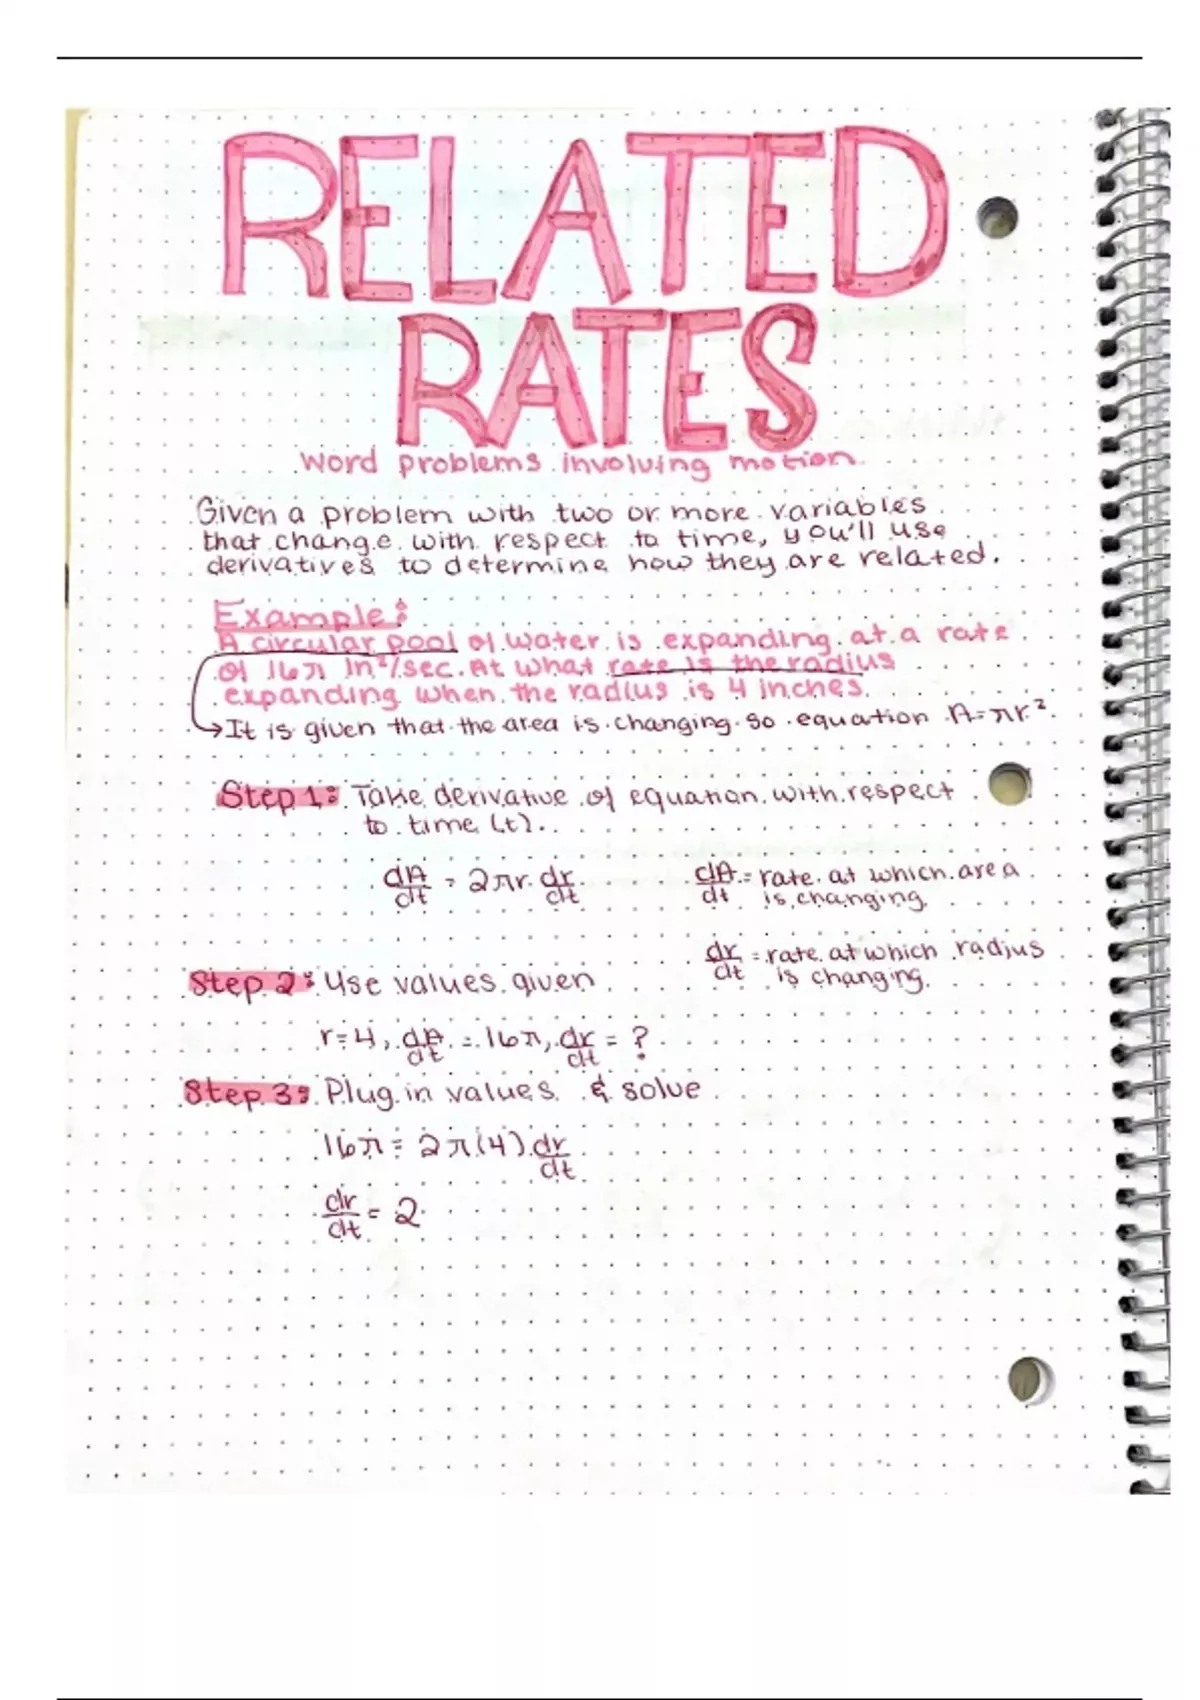 RELATED
RATES
word problems involving motion
Given a problem with two or more variables
that change with respect to time, you'll use
derivatives to determine how they are related.
Example:
A circular pool of water is expanding at a rate
of 16π in²/sec. At what rate is the radius
expanding when the radius is 4 inches.
→It is given that the area is changing so equation A=πr².
Step 1: Take derivative of equation with respect
to time (t).
dA/dt = 2πr dr/dt
dA/dt = rate at which area
is changing.
dr/dt = rate at which radius
is changing.
Step 2: Use values given
r=4, dA/dt = 16π, dr/dt = ?
Step 3: Plug in values & solve
16π = 2π(4) dr/dt
dr/dt = 2